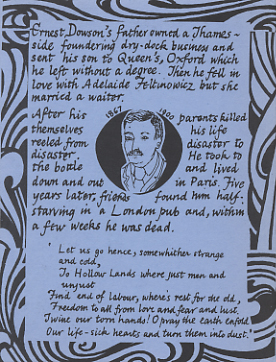 Ernest Dowson's father owned a Thames-
side foundering dry-dock business and
sent his son to Queen's, Oxford which
he left without a degree. Then he fell in
love with Adelaide Feltinowicz but she
married a waiter.
After his 1867 1900 parents killed
themselves his life
reeled from disaster to
disaster. He took to
the bottle and lived
down and out in Paris. Five
years later, friends found him half-
starving in a London pub and, within
a few weeks he was dead.
'Let us go hence, somewhither strange
and cold,
To Hollow Lands where just men and
unjust
Find end of labour, where's rest for the old,
Freedom to all from love and fear and lust.
Twine our torn hands! O pray the earth enfold
Our life-sick hearts and turn them into dust.'